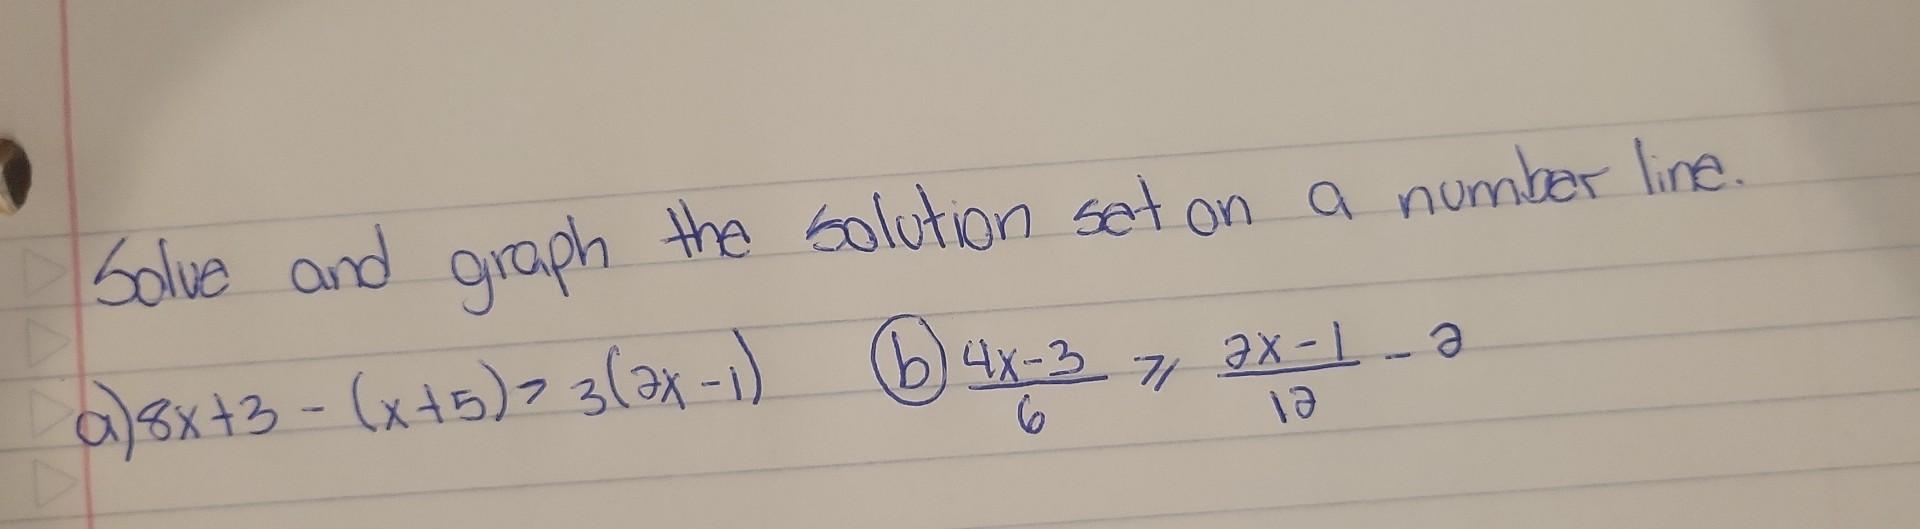 Solve and graph the solution set on a number line.
a) 8x+3 - (x+5) > 3(2x-1) b) (4x-3)/6 ≥ (2x-1)/12 - 2